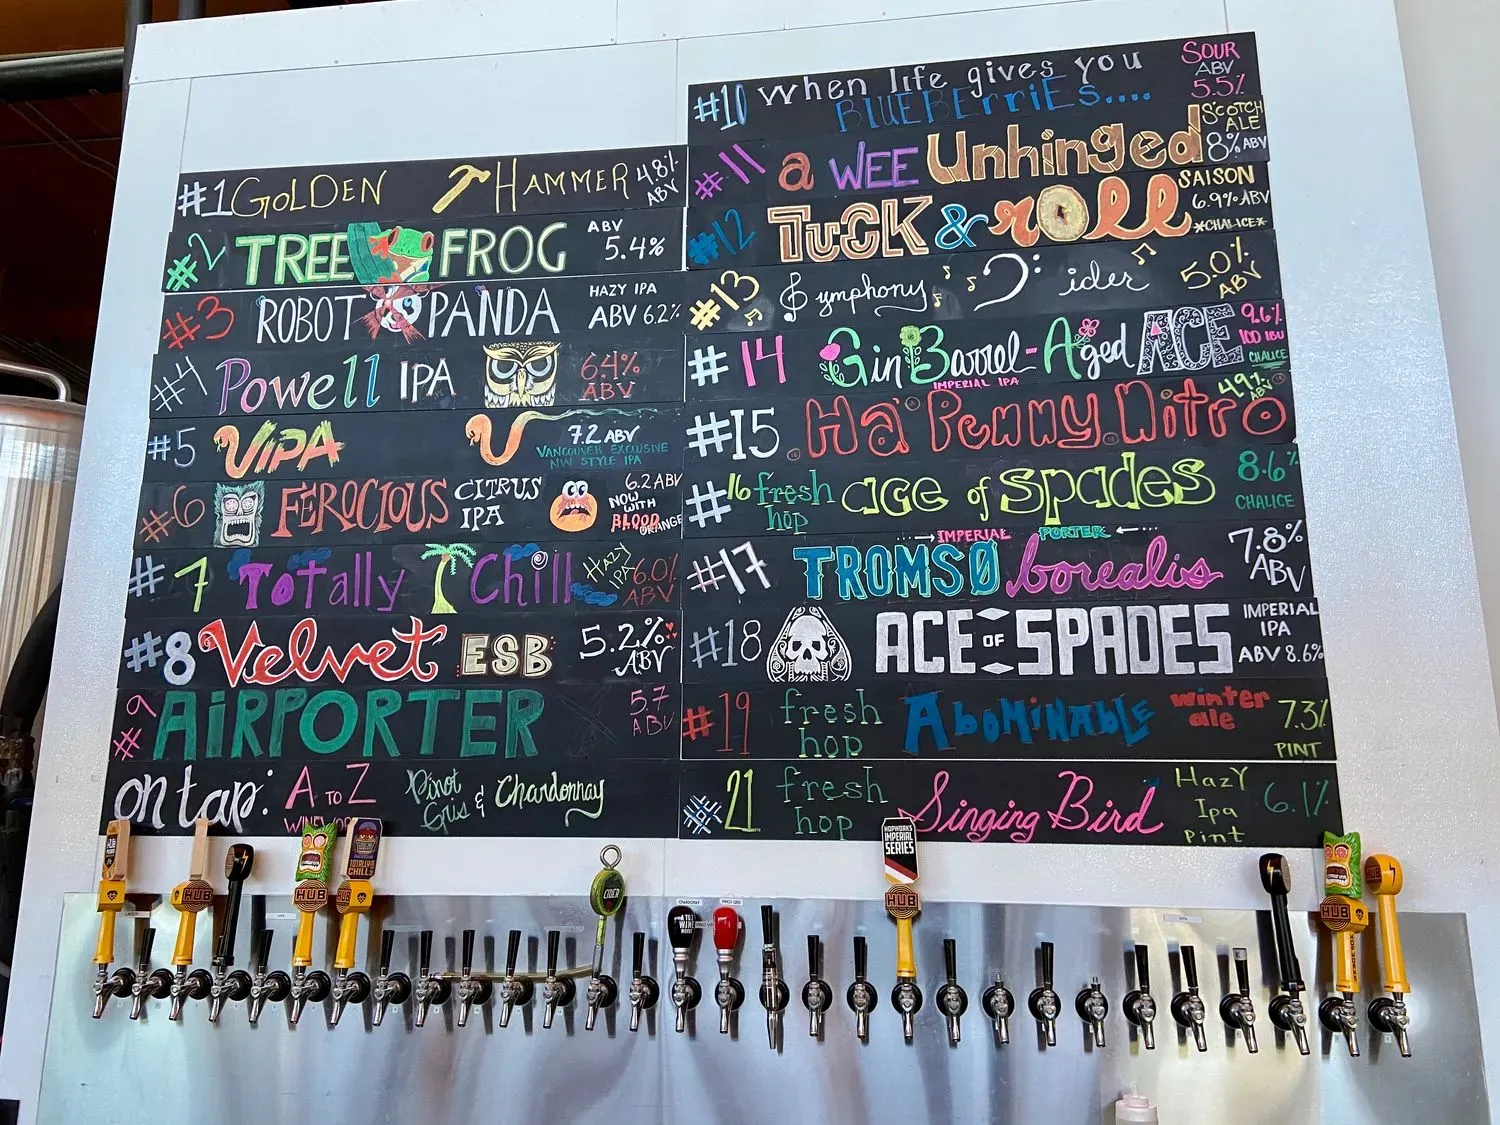 #1 GOLDEN HAMMER 4.8% ABV
#2 TREE FROG ABV 5.4%
#3 ROBOT PANDA HAZY IPA ABV 6.2%
#4 Powell IPA 64% ABV
#5 VIPA 7.2 ABV
VANCOUVER EXCLUSIVE
NW STYLE IPA
#6 FEROCIOUS CITRUS IPA 6.2 ABV
NOW WITH BLOOD ORANGE
#7 Totally Chill HAZY IPA 6.0% ABV
#8 Velvet ESB 5.2% ABV
#9 AiRPORTER 5.7 ABV
on tap: A TO Z Pinot Gris & Chardonnay
#10 When life gives you SOUR ABV 5.5%
BLUEBErriEs....
#11 a WEE Unhinged SCOTCH ALE 8% ABV
#12 TUCK & roll SAISON 6.9% ABV *CHALICE*
#13 Symphony Cider 5.0% ABV
#14 Gin Barrel-Aged ACE 9.6% 100 IBU CHALICE
IMPERIAL IPA
#15 Ha' Penny Nitro 4.9% ABV
#16 fresh hop ace of spades 8.6% CHALICE
IMPERIAL PORTER
#17 TROMSØ borealis 7.8% ABV
#18 ACE OF SPADES IMPERIAL IPA ABV 8.6%
#19 fresh hop Abominable winter ale 7.3% PINT
#21 fresh hop Singing Bird Hazy Ipa Pint 6.1%
HOPWORKS IMPERIAL SERIES
HUB
HUB
HUB
HUB
HUB
TOTALLY CHILL
CIDER